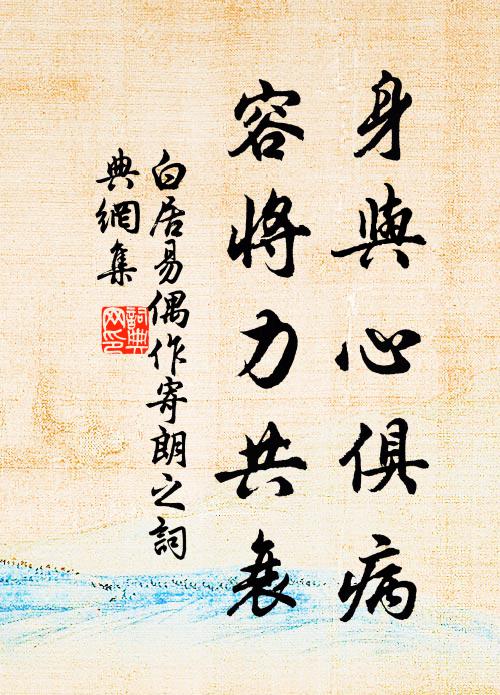 身與心俱病
容將力共衰
白居易偶作寄朗之詞
典網集
詞典网印